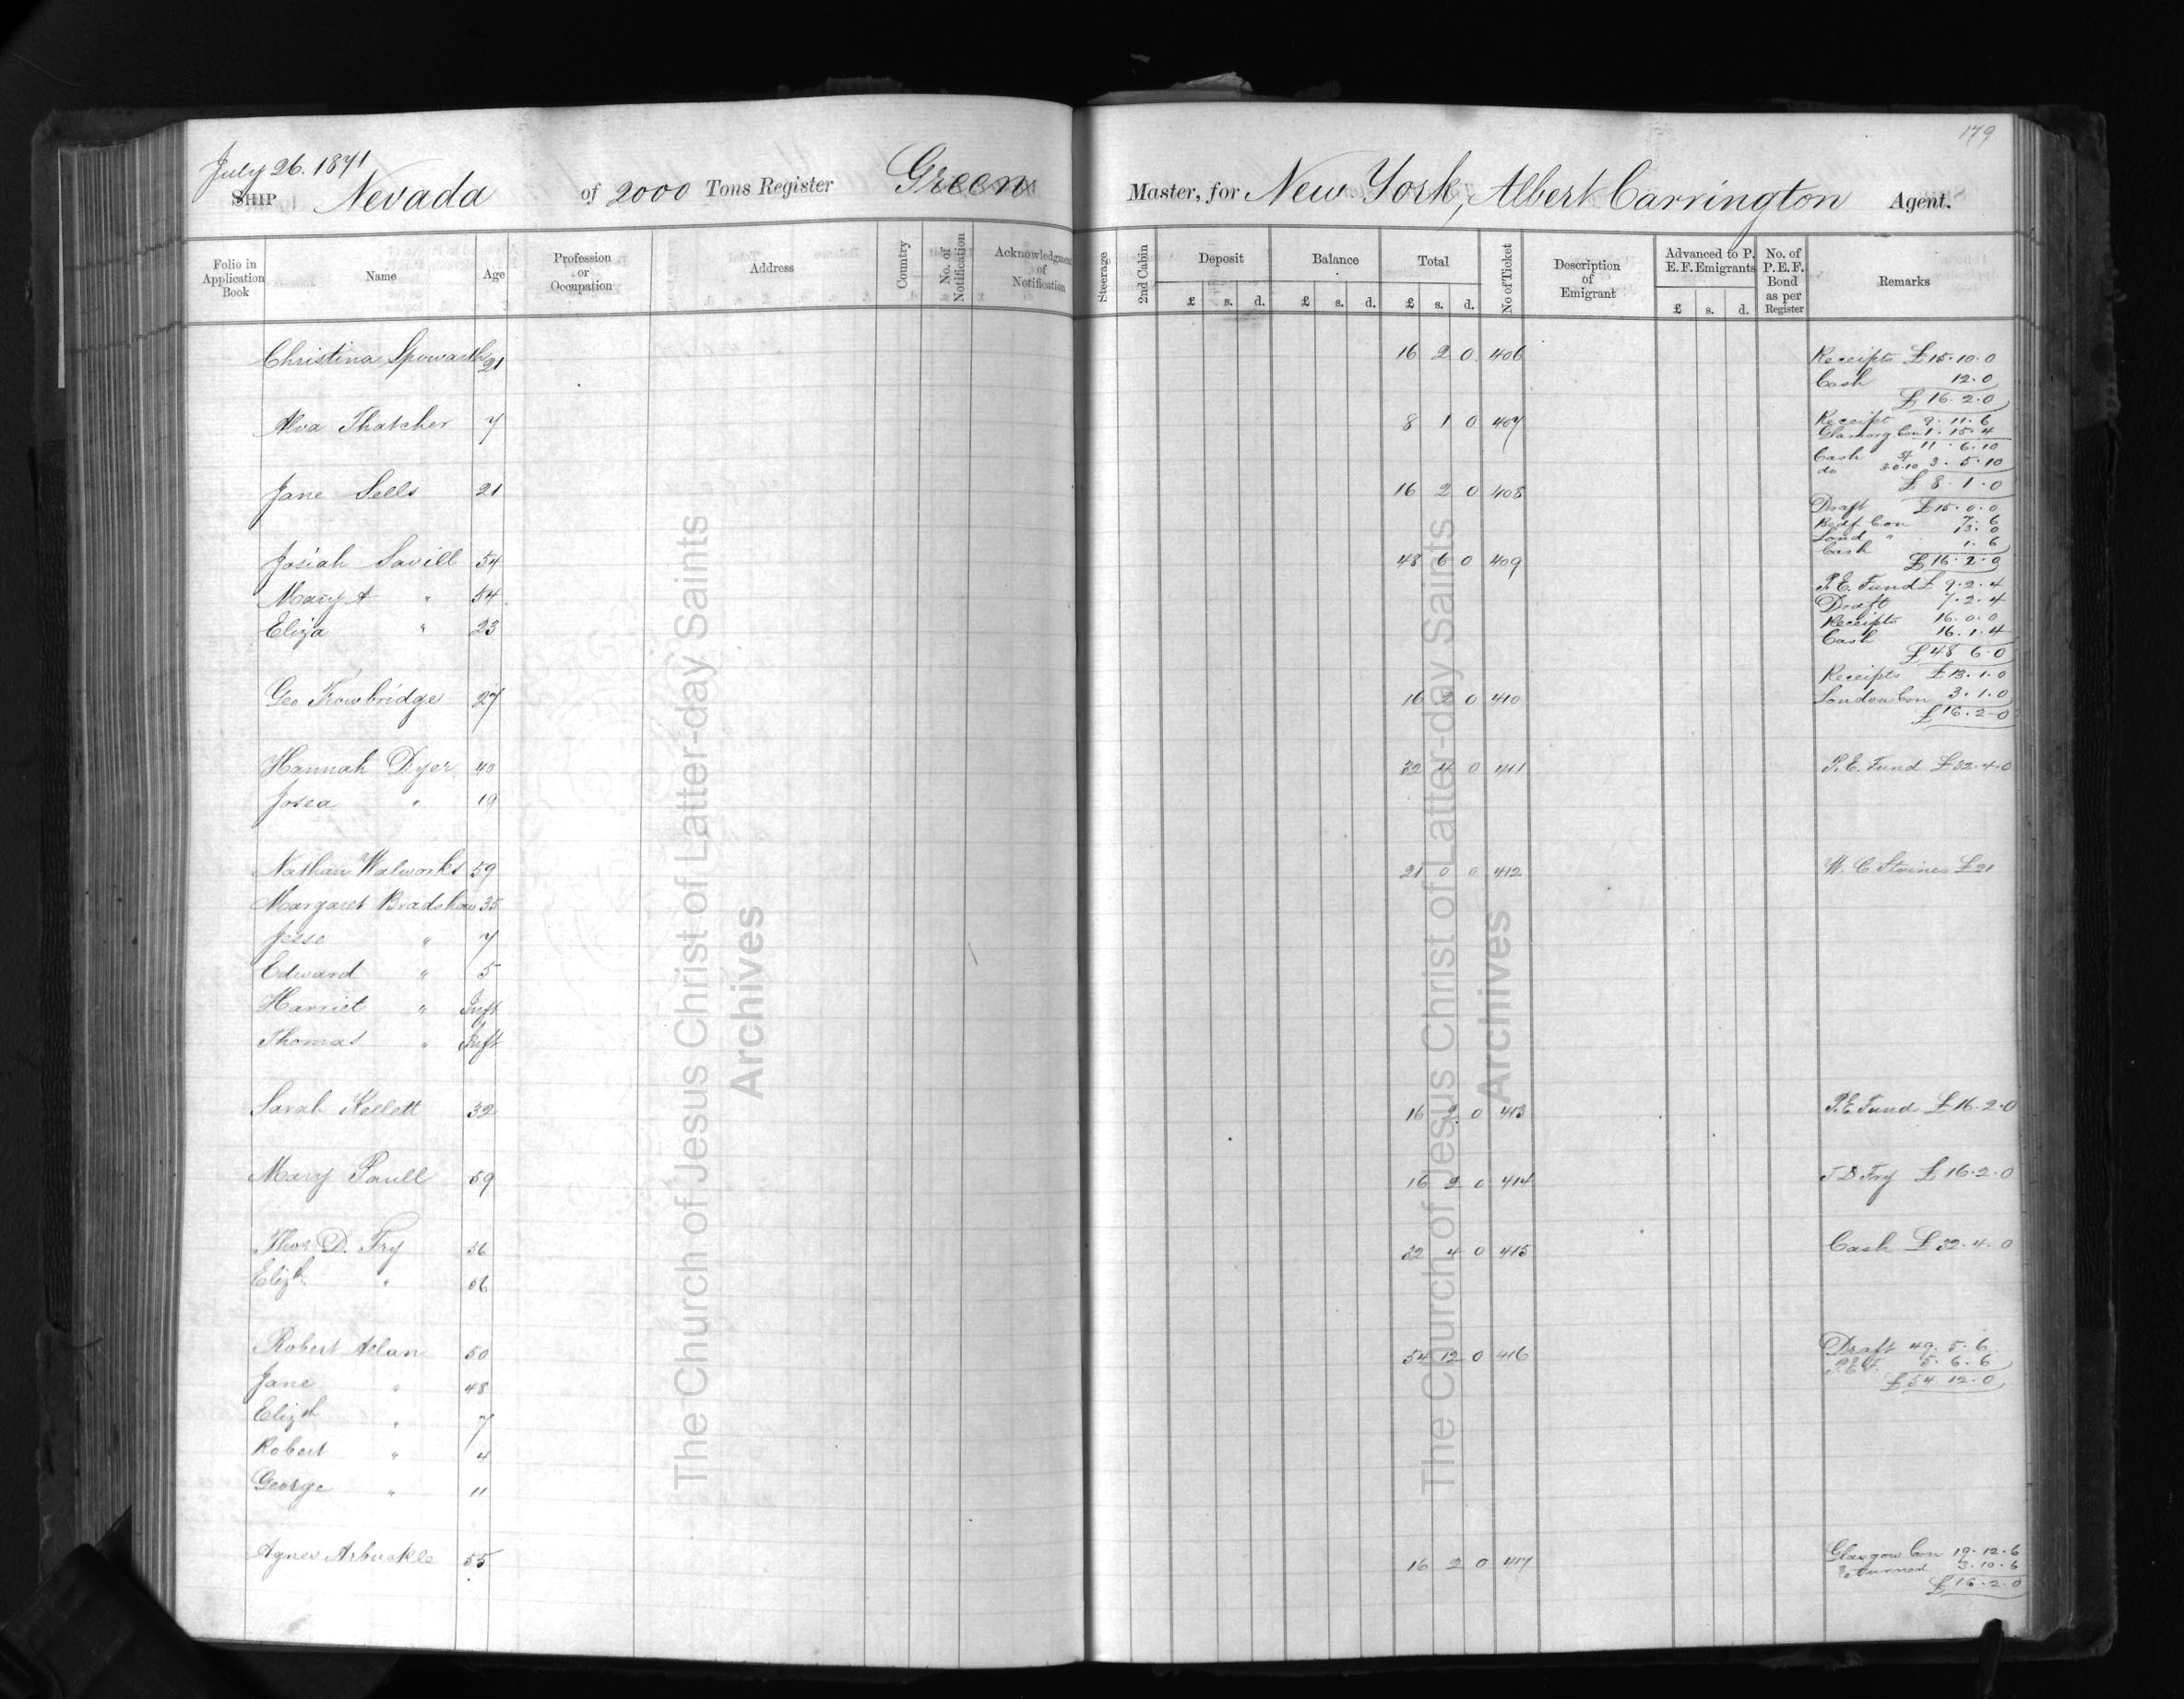 179
July 26. 1871
SHIP Nevada of 2000 Tons Register Green Master, for New York, Albert Carrington Agent.
Folio in Application Book Name Age Profession or Occupation Address Country No. of Notification Acknowledgment of Notification Steerage 2nd Cabin Deposit Balance Total No of Ticket Description of Emigrant Advanced to P. E. F. Emigrants No. of P. E. F. Bond as per Register Remarks
£ s. d. £ s. d. £ s. d. £ s. d.
Christina Spowarth 21 16 2 0 406 Receipts £15.10.0
Cash 12.0
£16.2.0
Alva Thatcher 7 8 1 0 407 Receipt 9.11.6
Glamorg Con 1.15.4
11.6.10
Cash 5/
do 3.0.10 3.5.10
£8.1.0
Jane Sells 21 16 2 0 408 Draft £15.0.0
Bedf Con 7.6
Lond " 13.0
Cash 1.6
£16.2.0
Josiah Savill 54 48 6 0 409 P.E. Fund £9.2.4
Mary A " 54 Draft 7.2.4
Eliza " 23 Receipts 16.0.0
Cash 16.1.4
£48 6.0
Geo Trowbridge 27 16 2 0 410 Receipts £13.1.0
London Con 3.1.0
£16.2.0
Hannah Dyer 40 32 4 0 411 P.E. Fund £32.4.0
Josea " 19
Nathan Walworks 59 21 0 0 412 W. C Staines £21
Margaret Bradshaw 35
Jesse " 7
Edward " 5
Harriet " Inft
Thomas " Inft
Sarah Kellett 32 16 2 0 413 P.E Fund £16.2.0
Mary Paull 59 16 2 0 414 T D Fry £16.2.0
Thos D. Fry 56 32 4 0 415 Cash £32.4.0
Elizth " 56
Robert Allan 50 54 12 0 416 Draft 49.5.6
Jane " 48 P.E.F. 5.6.6
£54.12.0
Elizth " 7
Robert " 4
George " 11
Agnes Arbuckle 55 16 2 0 417 Glasgow Con 19.12.6
Returned 3.10.6
£16.2.0
The Church of Jesus Christ of Latter-day Saints
Archives
The Church of Jesus Christ of Latter-day Saints
Archives